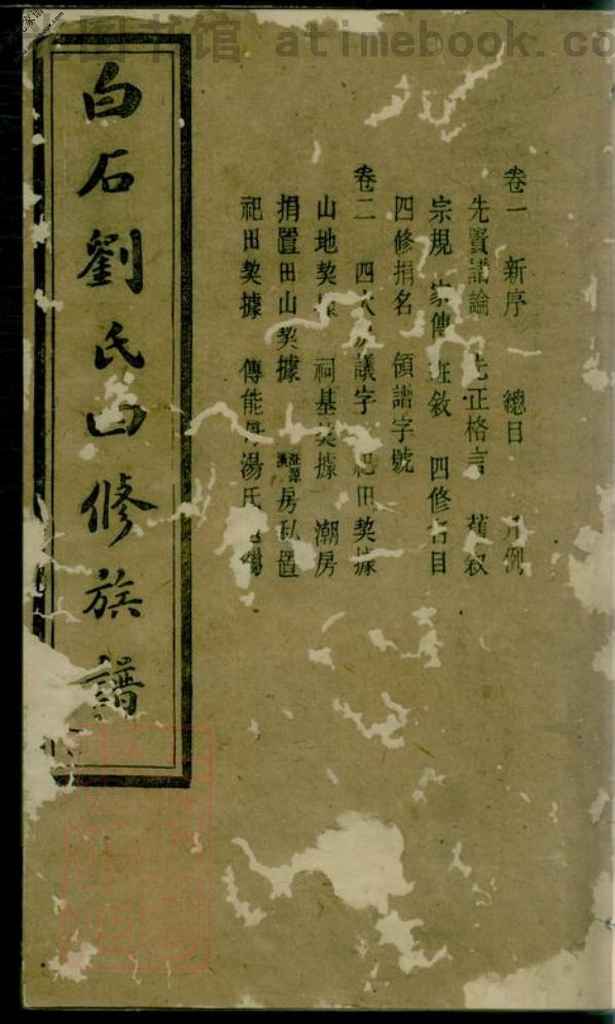 图书馆 atimebook.co
白石劉氏四修族譜
卷一 新序 總目 凡例
先賢議論 先正格言 舊叙
宗規 家傳 班叙 四修名目
四修捐名 領譜字號
卷二 四次 議字 祀田契據
山地契據 祠基契據 潮房
捐置田山契據 房私置
祀田契據 傳能 湯氏